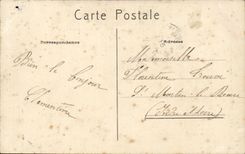 Carte Postale
Correspondance
Adresse
Bien le bonjour
Clémentine
Mademoiselle
Florentine
St Martin le Beau
(Indre & Loire)